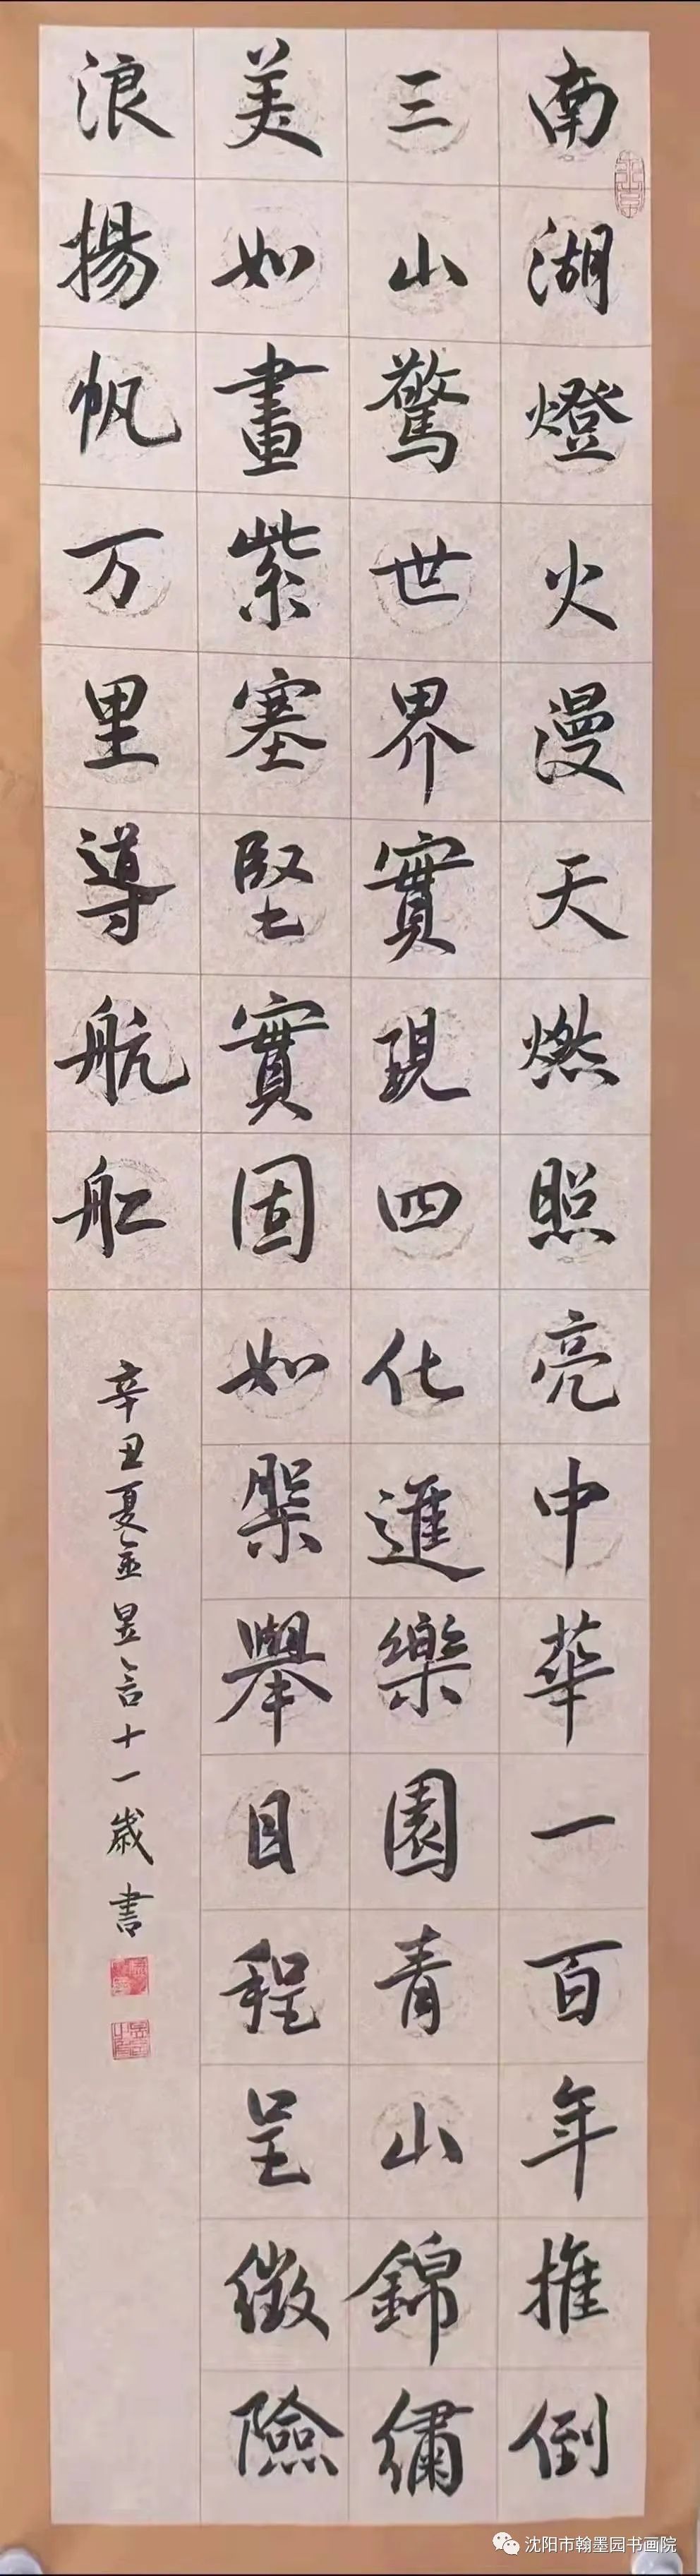 南湖燈火漫天燃照亮中華一百年推倒
三山驚世界實現四化進樂園青山錦繡
美如畫紫塞堅實固如槃舉目程呈徵險
浪揚帆万里導航舡
辛丑夏金昱言十一歲書
沈阳市翰墨园书画院